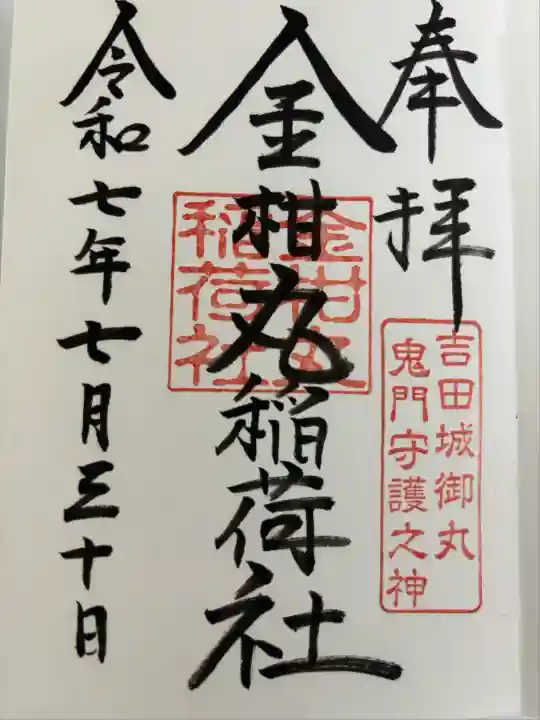 奉拝
吉田城御丸
鬼門守護之神
金柑丸稲荷社
稲荷社
令和七年七月三十日